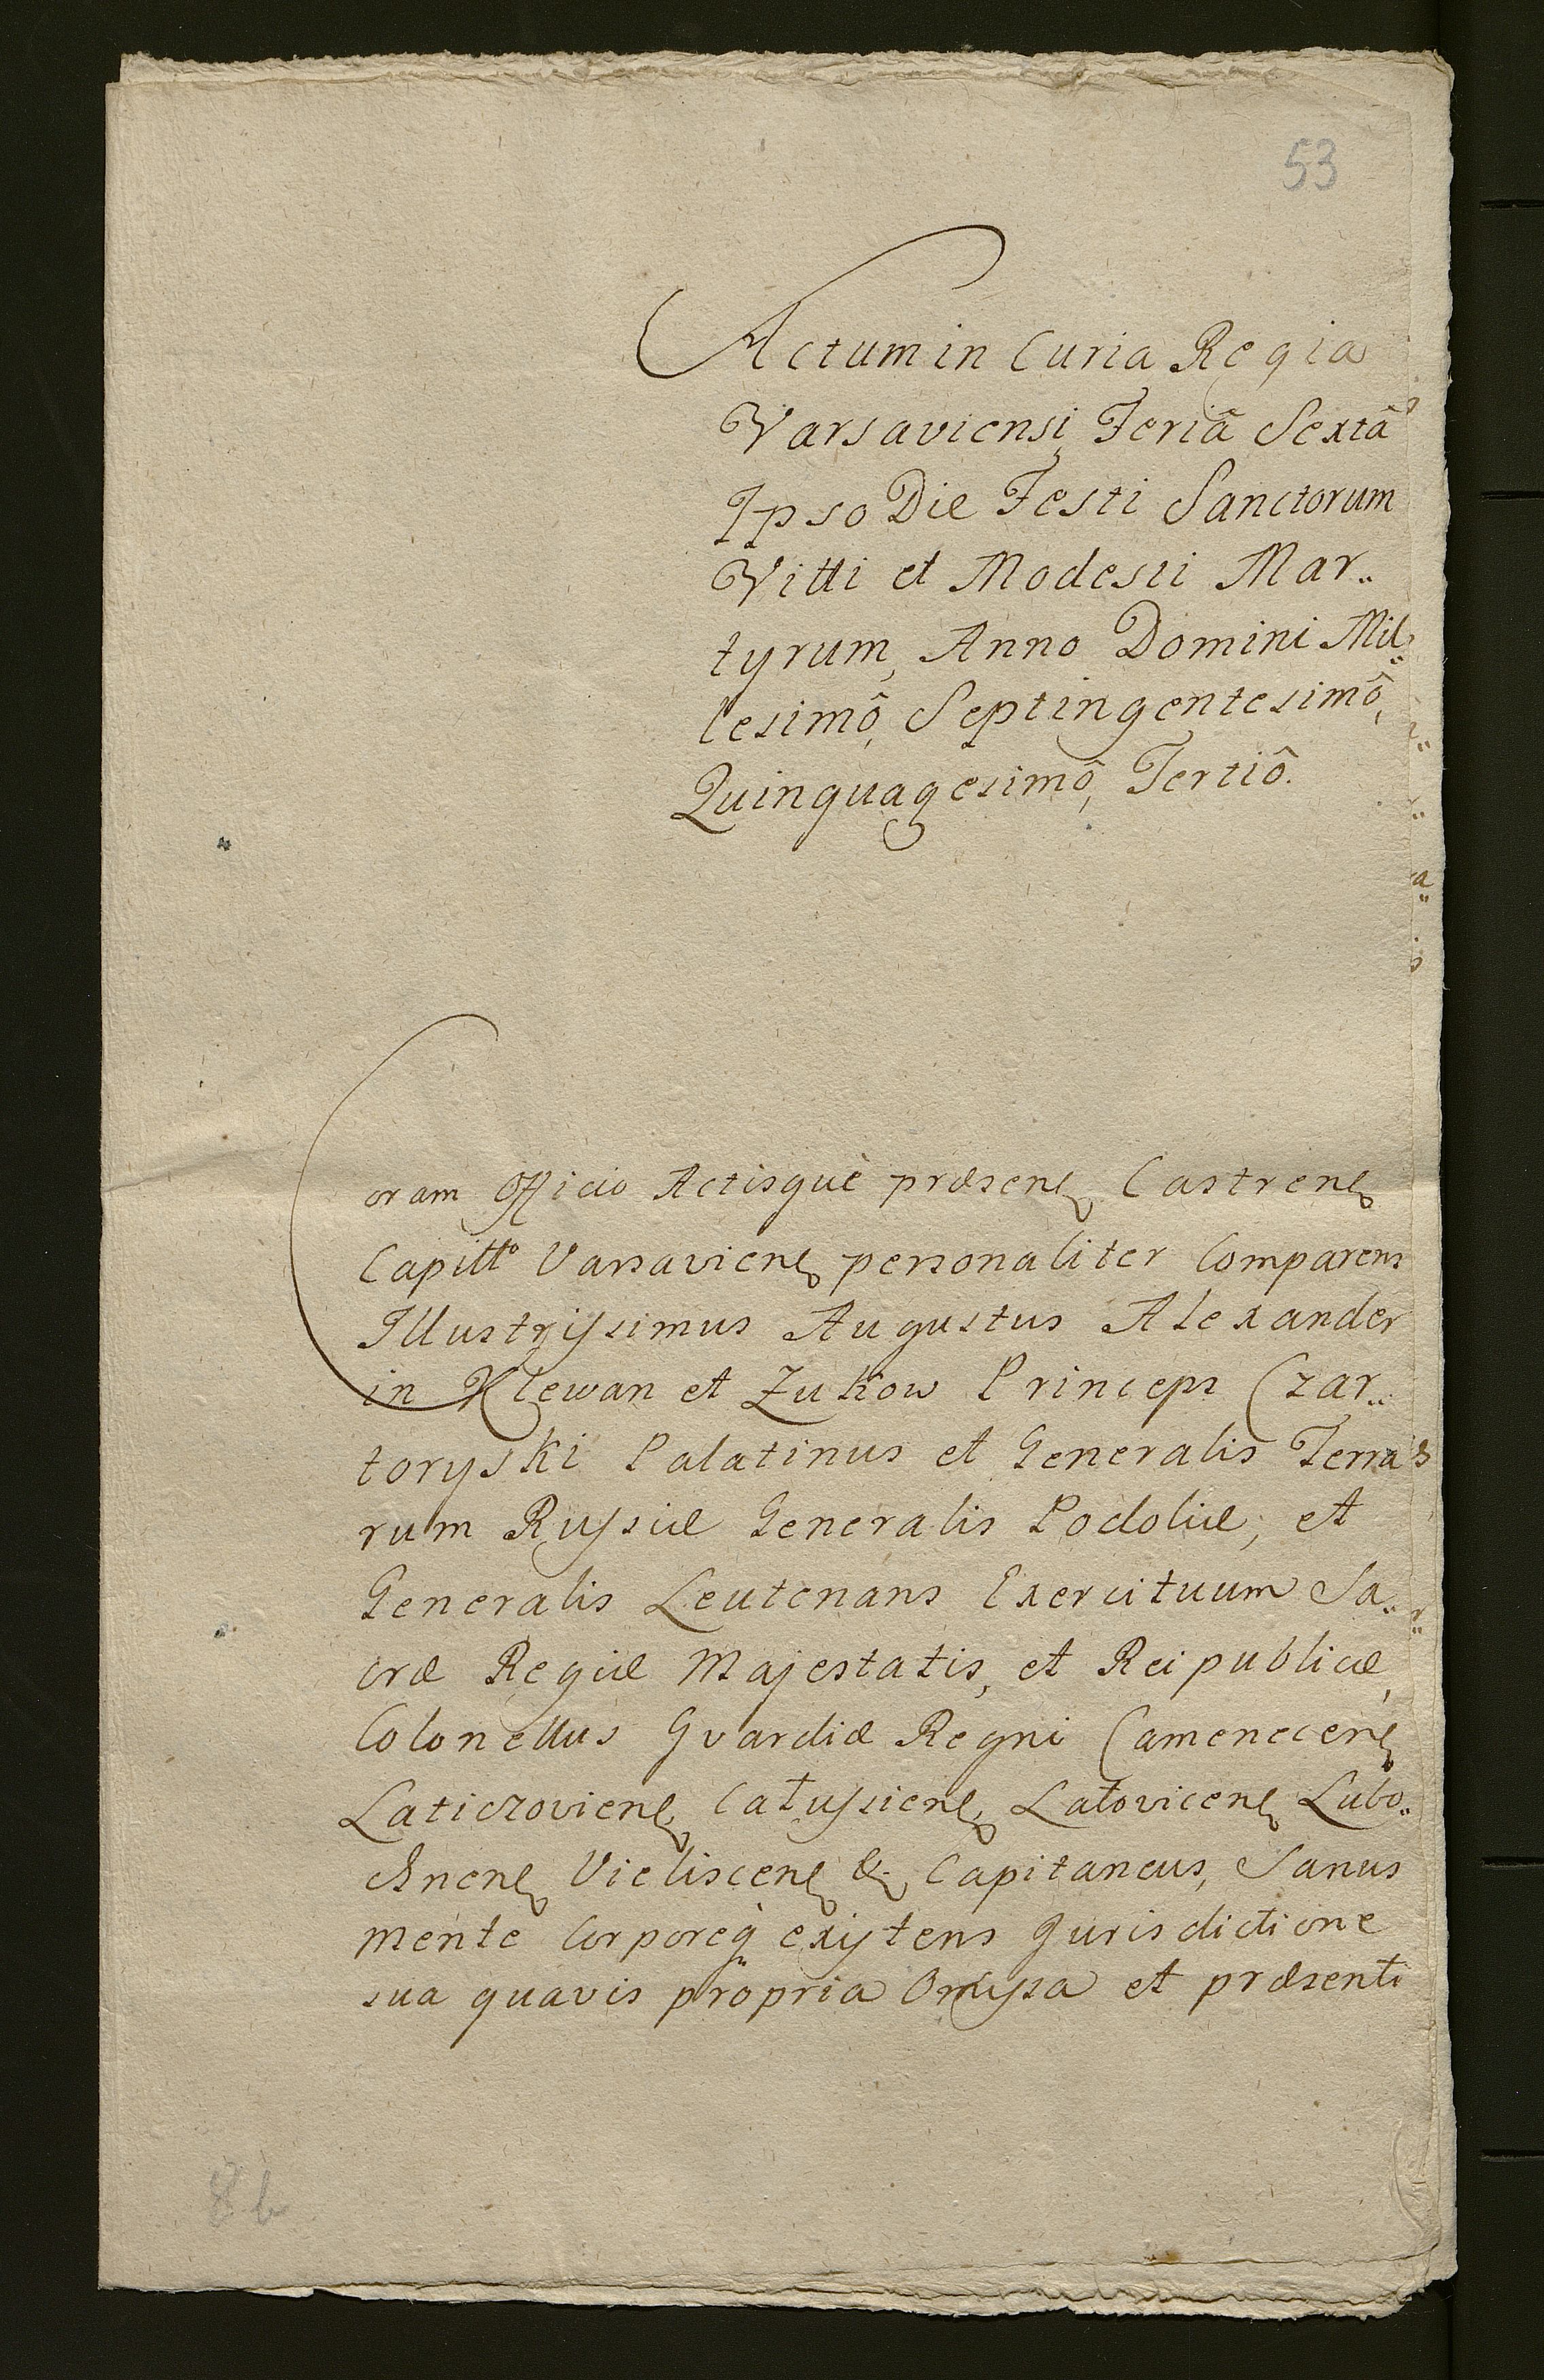 53
Actum in Curia Regia
Varsaviensi Feriâ Sextâ
Ipso Die Festi Sanctorum
Vitti et Modesti Mar„
tyrum, Anno Domini Mil„
lesimô, Septingentesimô,
Quinquagesimô, Tertiô.
Coram Officio Actisquè præsen Castren
Capittō Varsavien personaliter Comparens
Illustrissimus Augustus Alexander
in Klewan et Zukow Princeps Czar„
toryski Palatinus et Generalis Terra„
rum Russiæ Generalis Podoliæ, et
Generalis Leutenans Exercituum Sa„
cræ Regiæ Majestatis, et Reipublicæ,
Colonellus Gvardiæ Regni Camenecen
Laticzovien, Całussien, Latovicen Lubo„
chnen Vieliscen & Capitaneus, Sanus
mente Corporeq̀ existens Jurisdictione
sua quavis propria Omissa et præsenti
8b